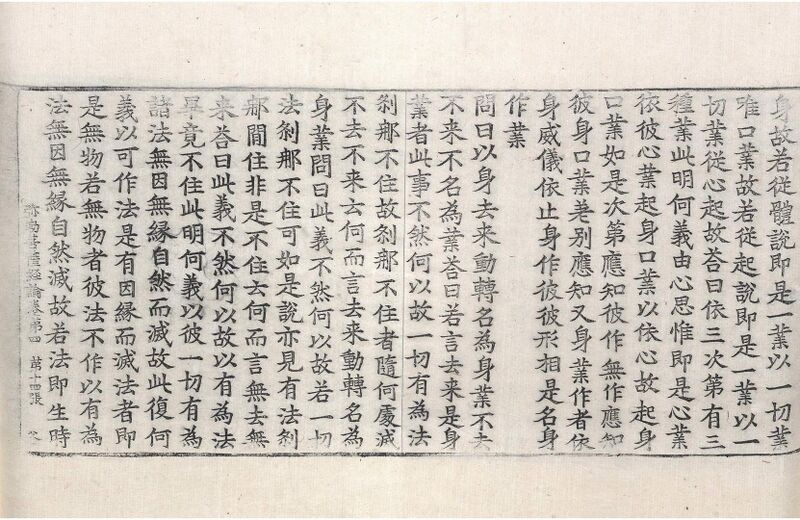 身故若從體說即是一業以一切業
唯口業故若從起說即是一業以一
切業從心起故荅曰依三次第有三
種業此明何義由心思惟即是心業
依彼心業起身口業以依心故起身
口業如是次第應知彼作無作應知
彼身口業差別應知又身業作者依
身威儀依止身作彼彼形相是名身
作業
問曰以身去来動轉名為身業不去
不来不名為業荅曰若言去来是身
業者此事不然何以故一切有為法
剎那不住故剎那不住者隨何處滅
不去不来云何而言去来動轉名為
身業問曰此義不然何以故若一切
法剎那不住可如是說亦見有法剎
那間住非是不住云何而言無去無
来荅曰此義不然何以故以有為法
畢竟不住此明何義以彼一切有為
諸法無因無緣自然而滅故此復何
義以可作法是有因緣而滅法者即
是無物若無物者彼法不作以有為
法無因無緣自然滅故若法即生時
弥勒菩薩經論卷第四 第十四張